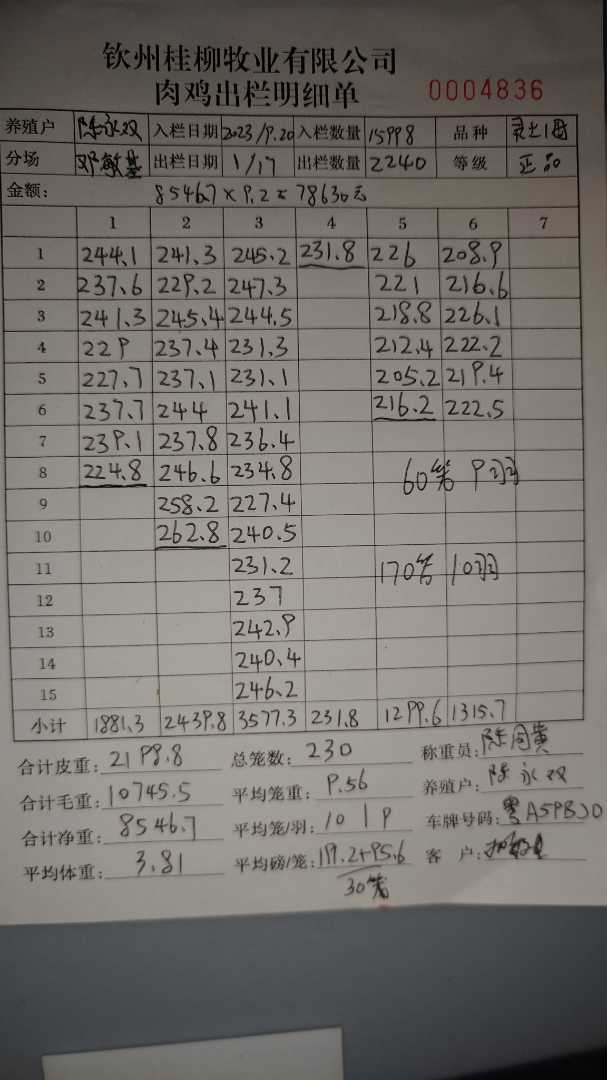 钦州桂柳牧业有限公司
肉鸡出栏明细单 0004836
养殖户 陈永双 入栏日期 2023/9.20 入栏数量 15998 品种
分场 邓敏基 出栏日期 1/17 出栏数量 2240 等级 正品
金额: 8546.7×9.2=78630元
1 2 3 4 5 6 7
1 244.1 241.3 245.2 231.8 226 208.9
2 237.6 229.2 247.3 221 216.6
3 241.3 245.4 244.5 218.8 226.1
4 229 237.4 231.3 212.4 222.2
5 227.7 237.1 231.1 205.2 219.4
6 237.7 244 241.1 216.2 222.5
7 239.1 237.8 236.4
8 224.8 246.6 234.8 60笼 9羽
9 258.2 227.4
10 262.8 240.5
11 231.2 170笼 10羽
12 237
13 242.9
14 240.4
15 246.2
小计 1881.3 2439.8 3577.3 231.8 1299.6 1315.7
合计皮重: 2198.8 总笼数: 230 称重员:
合计毛重: 10745.5 平均笼重: 9.56 养殖户: 陈永双
合计净重: 8546.7 平均笼/羽: 10 | 9 车牌号码:
平均体重: 3.81 平均磅/笼: 191.2+95.6 客户:
30笼